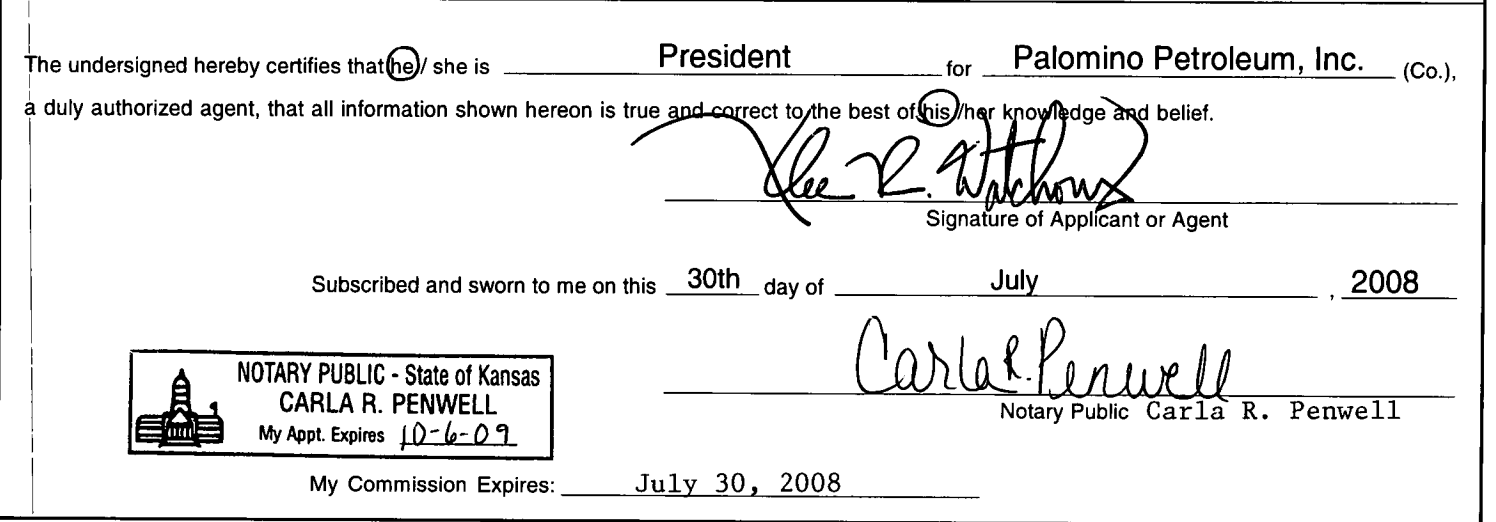 The undersigned hereby certifies that he / she is President for Palomino Petroleum, Inc. (Co.),
a duly authorized agent, that all information shown hereon is true and correct to the best of his /her knowledge and belief.
Klee R. Watchous
Signature of Applicant or Agent
Subscribed and sworn to me on this 30th day of July , 2008
Carla R. Penwell
Notary Public Carla R. Penwell
NOTARY PUBLIC - State of Kansas
CARLA R. PENWELL
My Appt. Expires 10-6-09
My Commission Expires: July 30, 2008